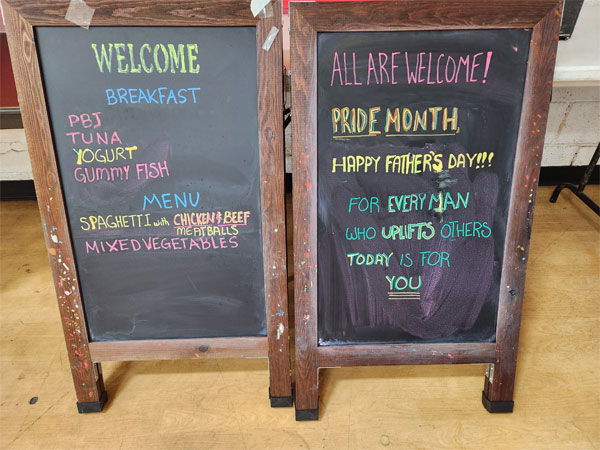 WELCOME
BREAKFAST
PBJ
TUNA
YOGURT
GUMMY FISH
MENU
SPAGHETTI with CHICKEN & BEEF
MEATBALLS
MIXED VEGETABLES
ALL ARE WELCOME!
PRIDE MONTH,
HAPPY FATHER'S DAY!!!
FOR EVERY MAN
WHO UPLIFTS OTHERS
TODAY IS FOR
YOU